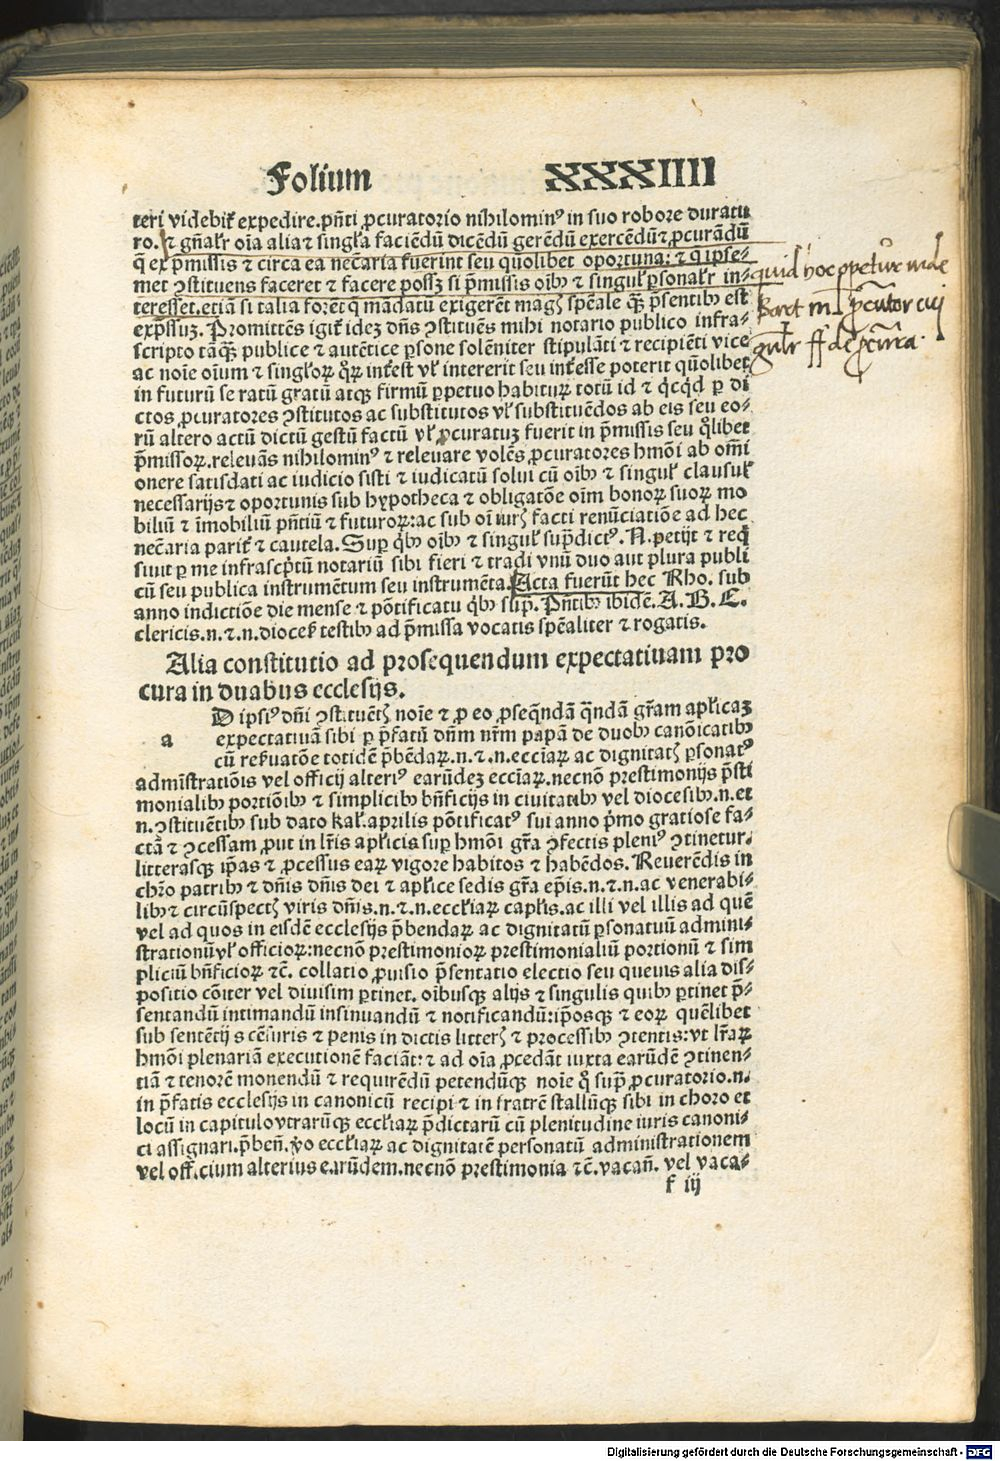 Folium XXXIIII
teri videbiť expedire.pñti ꝓcuratorio nihilominꝰ in suo robore duratu
ro. ⁊ gñaľr oĩa alia⁊ singľa faciẽdũ dicẽdũ gerẽdũ exercẽdũ⁊ ꝓcurãdũ
q̃ ex p̃missis ⁊ circa ea necc̃aria fuerint seu quõlibet oportuna: ⁊ q̃ ipse-
met ꝯstituens faceret ⁊ facere possꝫ si p̃missis oĩbꝫ ⁊ singuľ ꝑsonaľr in-
teresset.etiã si talia forẽt q̃ mãdatũ exigerẽt magꝭ spẽale q̃ꝫ p̃sentibꝫ est
exp̃ssuꝫ. Promittẽs igiť ideꝫ dñs ꝯstituẽs mihi notario publico infra-
scripto tãq̃ꝫ publice ⁊ autẽtice ꝑsone solẽniter stipulãti ⁊ recipiẽti vice
ac noĩe oĩum ⁊ singľoꝝ q̃ꝝ inťest vľ intererit seu inťesse poterit quõlibet
in futurũ se ratũ gratũ atqꝫ firmũ ꝑpetuo habiturꝫ totũ id ⁊ q̃cq̃d ꝑ di
ctos ꝓcuratores ꝯstitutos ac substitutos vľ substituẽdos ab eis seu eo-
rũ altero actũ dictũ gestũ factũ vľ ꝓcuratuꝫ fuerit in p̃missis seu q̃libet
p̃missoꝝ.releuãs nihilominꝰ ⁊ releuare volẽs ꝓcuratores hmõi ab om̃i
onere satisdati ac iudicio sisti ⁊ iudicatũ solui cũ oĩbꝫ ⁊ singuľ clausuľ
necessarijs⁊ oportunis sub hypotheca ⁊ obligatõe oĩm bonoꝝ suoꝝ mo
biliũ ⁊ ĩmobiliũ pñtiũ ⁊ futuroꝝ:ac sub oĩ iurꝭ facti renũciatiõe ad hec
necc̃aria pariť ⁊ cautela. Suꝑ q̃bꝫ oĩbꝫ ⁊ singuľ sup̃dictꝭ. N. petijt ⁊ req̃
siuit ꝑ me infrascp̃tũ notariũ sibi fieri ⁊ tradi vnũ duo aut plura publi
cũ seu publica instrumẽtum seu instrumẽta. Acta fuerũt hec Rho. sub
anno indictiõe die mense ⁊ põtificatu q̃bꝫ sup̃. Pñtibꝫ ibidẽ. A. B. C.
clericis.n. ⁊ n.dioceš testibꝫ ad p̃missa vocatis spẽaliter ⁊ rogatis.
Alia constitutio ad prosequendum expectatiuam pro
cura in duabus ecclesijs.
D ipsiꝰ dñi ꝯstituẽtꝭ noĩe ⁊ ꝓ eo ꝓseq̃ndã q̃ndã gr̃am apľicaꝫ
a expectatiuã sibi ꝑ p̃fatũ dñm nr̃m papã de duobꝫ canõicatibꝫ
cũ reẜuatõe totidẽ p̃bẽdaꝝ.n. ⁊ .n.ecciaꝝ ac dignitatꝭ ꝑsonatꝰ
admĩstratiõis vel officij alteriꝰ earũdeꝫ ecciaꝝ.necnõ prestimonijs p̃sti
monialibꝫ portiõibꝫ ⁊ simplicibꝫ bñficijs in ciuitatibꝫ vel diocesibꝫ.n. et
n.ꝯstituẽtibꝫ sub dato kaľ.aprilis põtificatꝰ sui anno p̃mo gratiose fa-
ctã ⁊ ꝯcessam ꝓut in lr̃is apľicis suꝑ hmõi gr̃a ꝯfectis pleniꝰ ꝯtinetur.
litterasqꝫ ip̃as ⁊ ꝓcessus eaꝝ vigore habitos ⁊ habẽdos. Reuerẽdis in
chr̃o patribꝫ ⁊ dñis dñis dei ⁊ apľice sedis gr̃a ep̃is.n. ⁊ n. ac venerabi-
libꝫ ⁊ circũspectꝭ viris dñis.n. ⁊ n.eccľiaꝝ capľis. ac illi vel illis ad quẽ
vel ad quos in eisdẽ ecclesijs p̃bendaꝝ ac dignitatũ ꝑsonatuũ admini-
strationũ vľ officioꝝ:necnõ prestimonioꝝ prestimonialiũ portionũ ⁊ sim
pliciũ bñficioꝝ ⁊c̃. collatio ꝓuisio p̃sentatio electio seu queuis alia dis-
positio cõiter vel diuisim ꝑtinet. oĩbusqꝫ alijs ⁊ singulis quibꝫ ꝑtinet p̃-
sentandũ intimandũ insinuandũ ⁊ notificandũ:ip̃osqꝫ ⁊ eoꝝ quẽlibet
sub sentẽtijs cẽsuris ⁊ penis in dictis litterꝭ ⁊ processibꝫ ꝯtentis:vt lr̃aꝝ
hmõi plenariã executionẽ faciãt: ⁊ ad oĩa ꝓcedãt iuxta earũdẽ ꝯtinen-
tiã ⁊ tenorẽ monendũ ⁊ requirẽdũ petendũqꝫ noĩe q̃ sup̃ ꝓcuratorio.n.
in p̃fatis ecclesijs in canonicũ recipi ⁊ in fratrẽ stallũqꝫ sibi in choro et
locũ in capitulo vtrarũqꝫ eccľiaꝝ p̃dictarũ cũ plenitudine iuris canoni-
ci assignari.p̃beñ. ṽo eccľiaꝝ ac dignitatẽ personatũ administrationem
vel off.cium alterius earũdem.necnõ prestimonia ⁊c̃. vacañ. vel vaca-
f iij